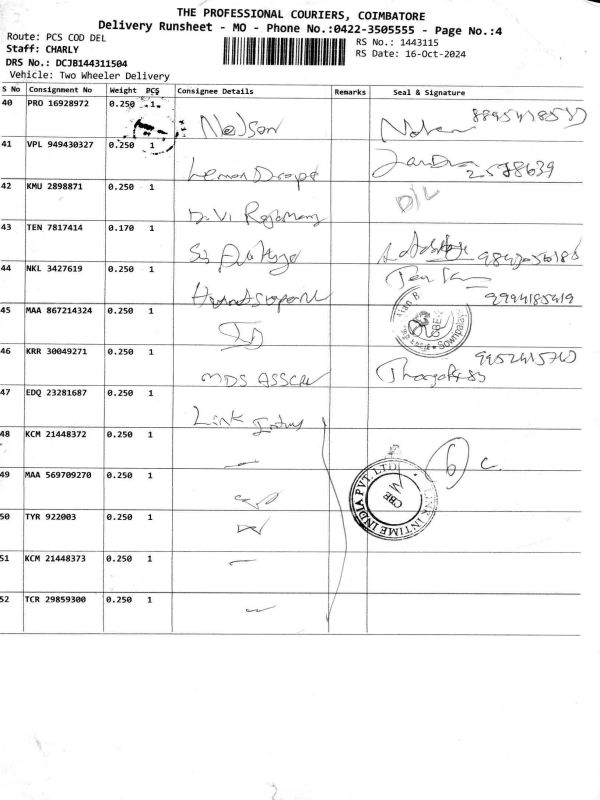 THE PROFESSIONAL COURIERS, COIMBATORE
Delivery Runsheet - MO - Phone No.:0422-3505555 - Page No.:4
Route: PCS COD DEL
RS No.: 1443115
Staff: CHARLY
RS Date: 16-Oct-2024
DRS No.: DCJB144311504
Vehicle: Two Wheeler Delivery
S No Consignment No Weight PCS Consignee Details Remarks Seal & Signature
40 PRO 16928972 0.250 1 Nelson
41 VPL 949430327 0.250 1 Lemon Drops
42 KMU 2898871 0.250 1 D/L
43 TEN 7817414 0.170 1
44 NKL 3427619 0.250 1 9994185419
45 MAA 867214324 0.250 1
46 KRR 30049271 0.250 1 MDS
47 EDQ 23281687 0.250 1 Link
48 KCM 21448372 0.250 1
49 MAA 569709270 0.250 1
LINK INTIME INDIA PVT. LTD. CBE
50 TYR 922003 0.250 1
51 KCM 21448373 0.250 1
52 TCR 29859300 0.250 1